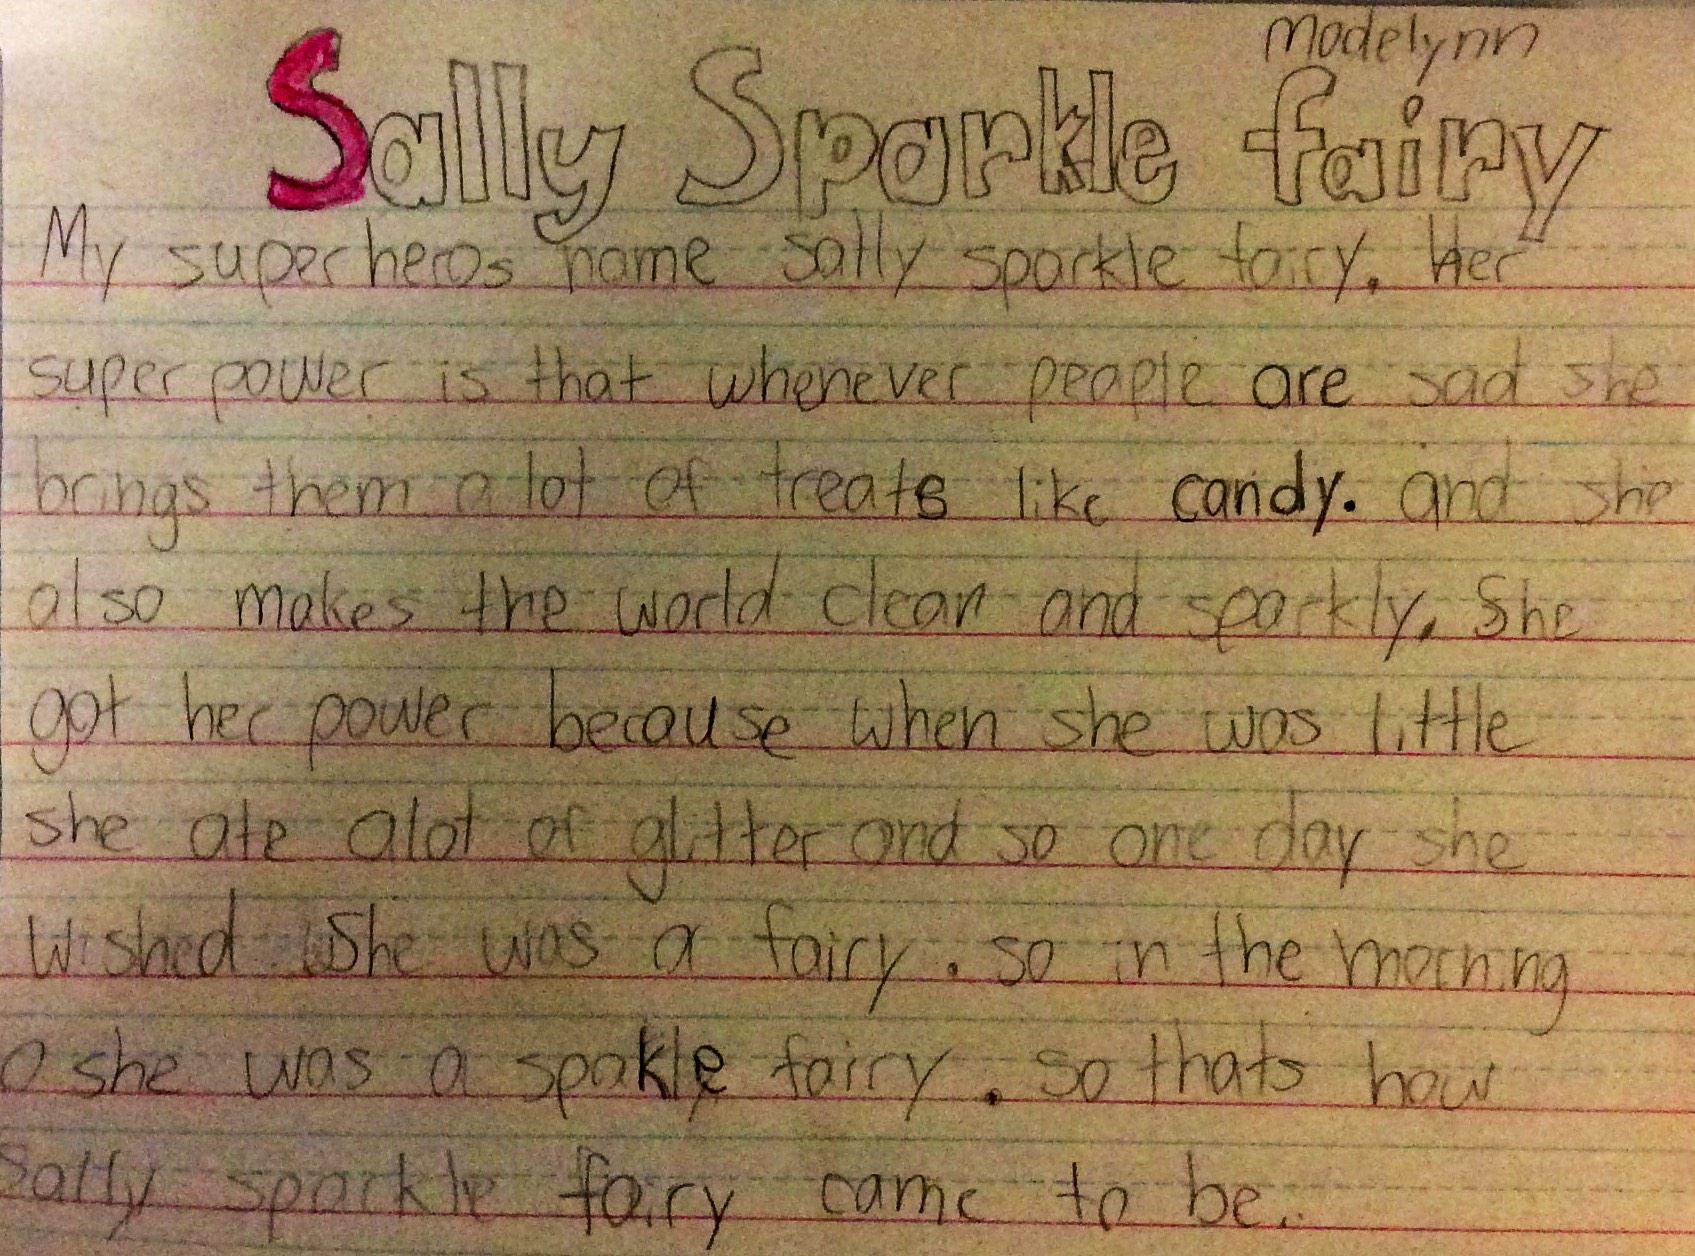 Madelynn
Sally Sparkle fairy
My superheros name sally sparkle fairy. Her
super power is that whenever people are sad she
brings them a lot of treats like candy. and she
also makes the world clean and sparkly. She
got her power because when she was little
she ate alot of glitter and so one day she
wished she was a fairy. so in the morning
she was a spakle fairy. so thats how
Sally sparkle fairy came to be.